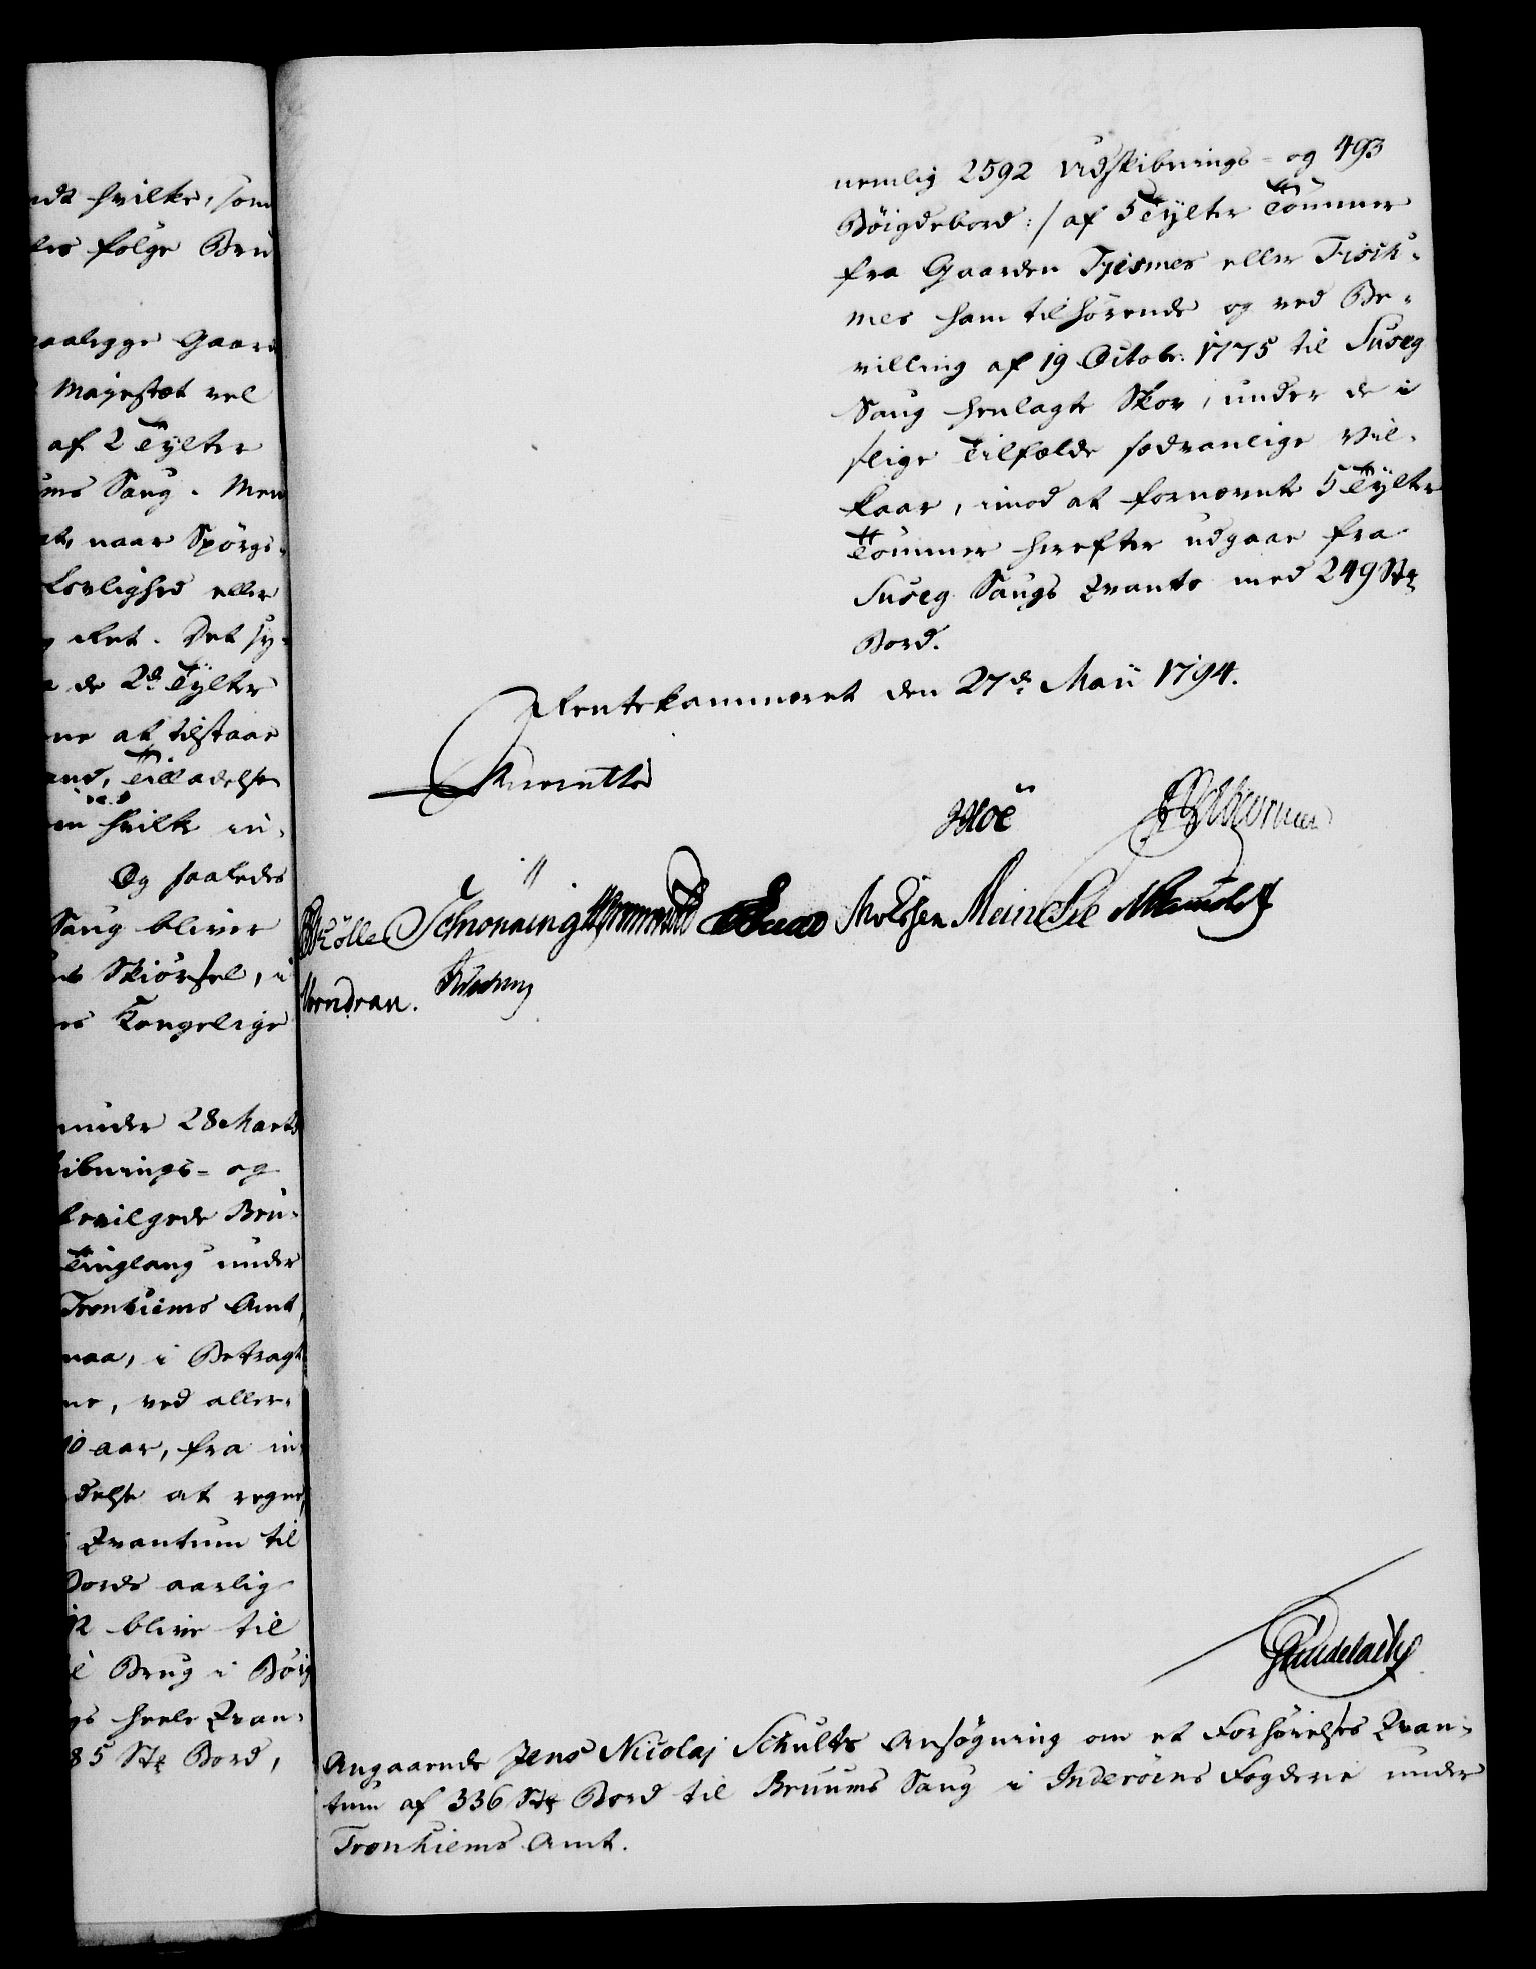 ndt hvilke, som
des følge Bru
paaligge Gaard
Majestæt vel
af 2 Tylter
ums Saug. Men
at, naar Spörgs-
Lovlighed eller
Ret. Det sy-
de 2de Tylter
ne at tilstaae
and, Tilladelse
hvilke in-
Og saaledes
Saug bliver
Skiörsel, i
es Kongelige
under 28 Marts
ibnings- og
bevilgede Bru-
Tinglaug under
Tronhiems Amt,
maa, i Betragt
ne, ved aller-
10 aar, fra in-
delse at regne,
Qvantum til
Bords aarlig
blive til
Brug i Böig
gs heele Qvan-
85 Stk Bord,
nemlig 2592 Udskibnings- og 493
Böigdebord :/ af 5 Tylter Tömmer
fra Gaarden Tjesmes eller Fisch-
mes ham tilhörende og ved Be-
villing af 19 Octobr: 1775 til Suseg
Saug henlagte Skov, under de i
slige Tilfælde sædvanlige Vil-
kaar, imod at fornævnte 5 Tylter
Tömmer herefter udgaae fra
Suseg Saugs Qvanto med 249 Stk
Bord.
Rentekammeret den 27de Maii 1794.
Hoë
Kölle Schönning Molssen Meincke
Wendrau.
Angaaende Jens Nicolaj Schults Ansögning om et Forhöielses Qvan-
tum af 336 Stk Bord til Bruums Saug i Inderöens Fogderie under
Tronhiems Amt.